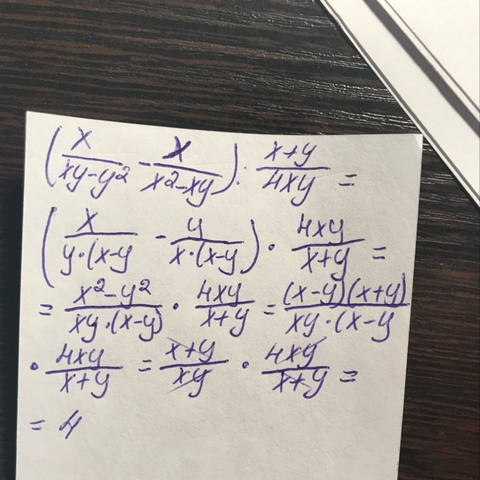 (x/(xy-y²) - x/(x²-xy)) : (x+y)/(4xy) =
(x/(y·(x-y) - y/(x·(x-y)) · 4xy/(x+y) =
= (x²-y²)/(xy·(x-y)) · 4xy/(x+y) = (x-y)(x+y)/(xy·(x-y)
· 4xy/(x+y) = (x+y)/(xy) · 4xy/(x+y) =
= 4